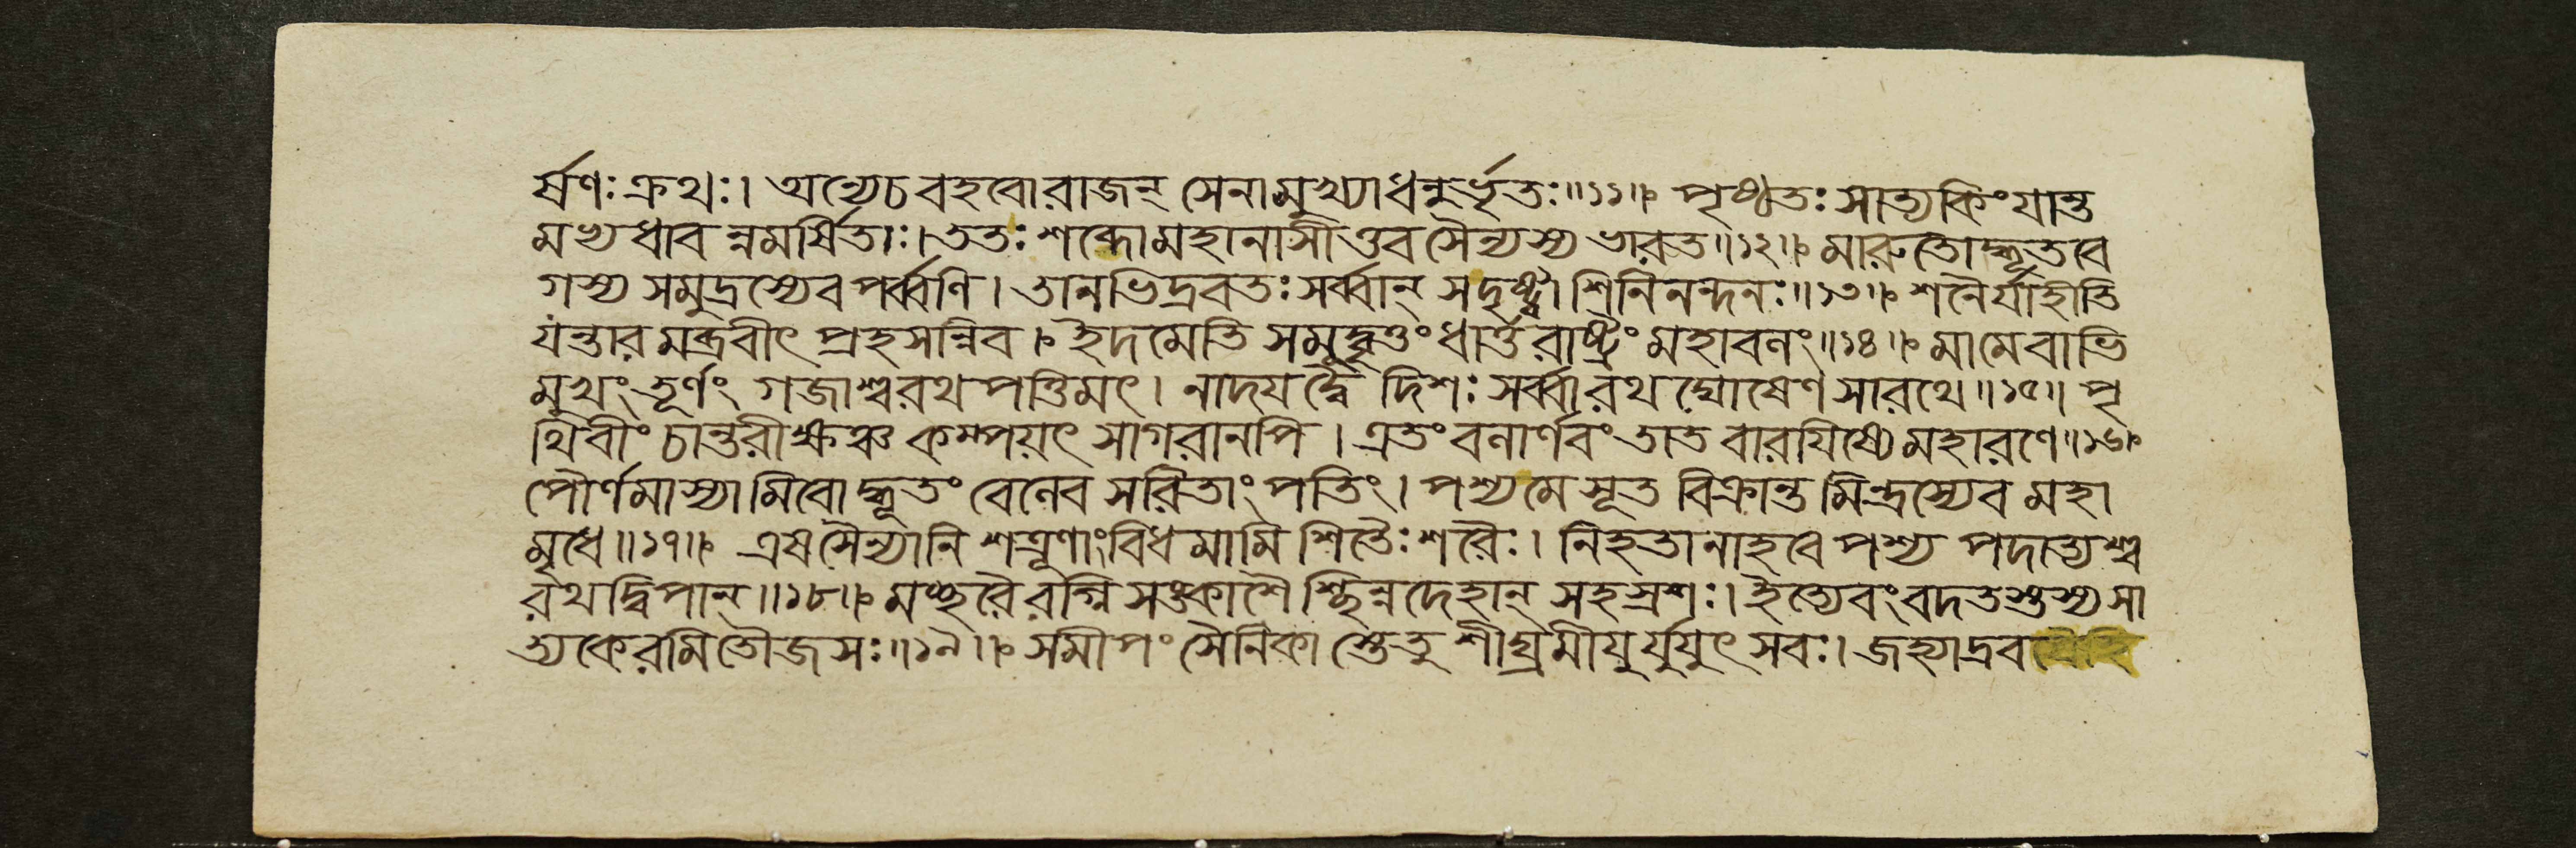 র্ষণঃ ক্রথঃ। অন্যেচ বহবো রাজন্ সেনামুখ্যা ধনুর্ভৃতঃ॥১১॥ পৃষ্ঠতঃ সাত্যকিং যান্ত
মভ্যধাবন্নমর্ষিতাঃ। ততঃ শব্দো মহানাসীত্তব সৈন্যস্য ভারত॥১২॥ মারুতোদ্ধূতবে
গস্য সমুদ্রস্যেব পর্ব্বণি। তানভিদ্রবতঃ সর্ব্বান্ সদৃষ্ট্বা শিনিনন্দনঃ॥১৩॥ শনৈর্যাহীতি
যন্তারমব্রবীৎ প্রহসন্নিব। ইদমেতি সমুদ্ধূতং ধার্ত্তরাষ্ট্রং মহাবনং॥১৪॥ মামেবাভি
মুখং তূর্ণং গজাশ্বরথপত্তিমৎ। নাদযদ্বৈ দিশঃ সর্ব্বা রথঘোষেণ সারথে॥১৫॥ পৃ
থিবীং চান্তরীক্ষঞ্চ কম্পয়ৎ সাগরানপি। এতং বনার্ণবং তাত বারযিষ্যে মহারণে॥১৬॥
পৌর্ণমাস্যামিবোদ্ধূতং বেলেব সরিতাং পতিং। পশ্য মে সূত বিক্রান্তমিন্দ্রস্যেব মহা
মৃধে॥১৭॥ এষ সৈন্যানি শত্রূণাং বিধমামি শিতৈঃ শরৈঃ। নিহতানাহবে পশ্য পদাত্যশ্ব
রথদ্বিপান্॥১৮॥ মচ্ছরৈরগ্নিসঙ্কাশৈশ্ছিন্নদেহান্ সহস্রশঃ। ইত্যেবং বদতস্তস্য সা
ত্যকেরমিতৌজসঃ॥১৯॥ সমীপং সৈনিকাস্তেতু শীঘ্রমীযুর্যুযুৎসবঃ। জহ্যাদ্রব